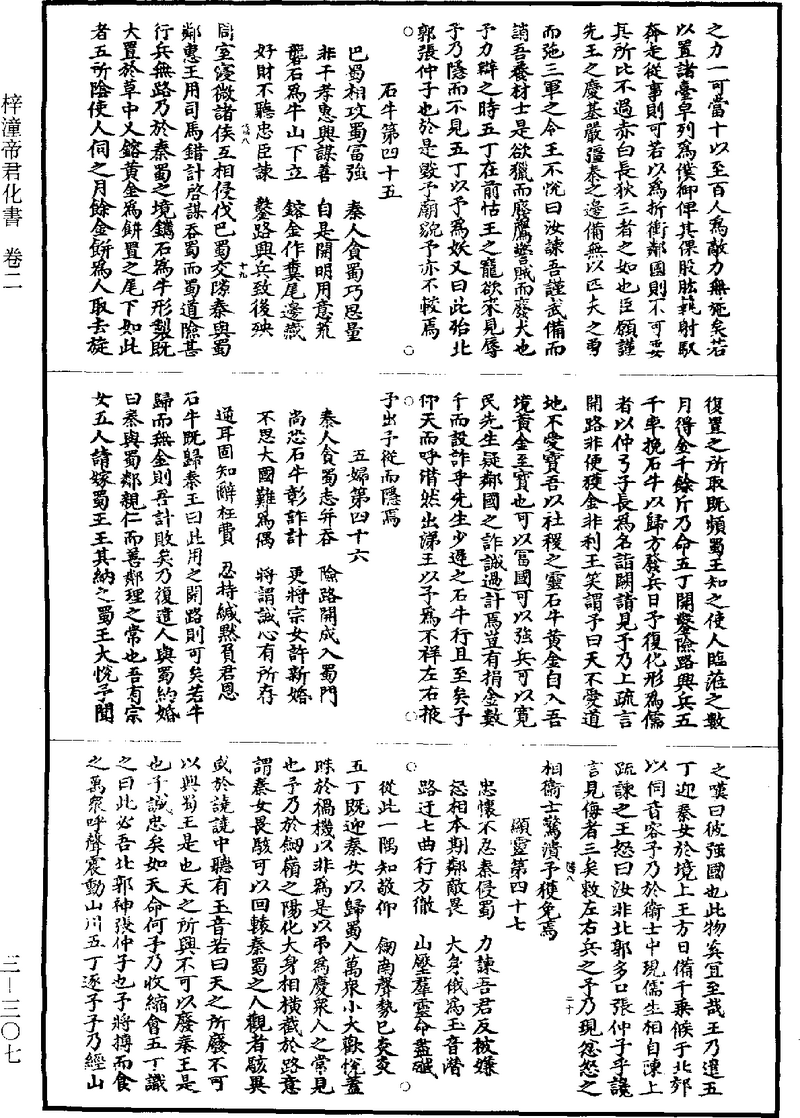 梓潼帝君化書 卷二
三—三〇七
之力一可當十以至百人為敵力無施矣若
以置諸臺皁列為僕御俾其保股肱羝射馭
奔走從事則可若以為折衝鄰國則不可要
其所比不過赤白長狄三者之如也臣願謹
先王之慶基嚴彊秦之邊備無以匹夫之勇
而弛三軍之令王不悅曰汝諫吾謹武備而
誚吾養材士是欲獵而廢鷹禦賊而廢犬也
予力辯之時五丁在前怙王之寵欲來見辱
予乃隱而不見五丁以予為妖又曰此殆北
郭張仲子也於是毀予廟貌予亦不較焉
石牛第四十五
巴蜀相攻蜀富強 秦人貪蜀巧思量
非干孝惠興謀善 自是開明用意荒
鑿石為牛山下立 鎔金作糞尾邊藏
好財不聽忠臣諫 鑿路興兵致後殃
周室寖微諸侯互相侵伐巴蜀交隙秦與蜀
鄰惠王用司馬錯計啓謀吞蜀而蜀道險甚
行兵無路乃於秦蜀之境鐫石為牛形製既
大置於草中又鎔黃金為餅置之尾下如此
者五所陰使人伺之月餘金餅為人取去旋
復置之所取既頻蜀王知之使人臨涖之數
月得金千餘斤乃命五丁開鑿險路興兵五
千車挽石牛以歸方發兵日予復化形為儒
者以仲弓子長為名詣闕請見予乃上疏言
開路非便獲金非利王笑謂予曰天不愛道
地不愛寶吾以社稷之靈石牛黃金自入吾
境黃金至寶也可以富國可以強兵可以寬
民先生疑鄰國之詐誠過計焉豈有捐金數
千而設詐乎先生少遲之石牛行且至矣予
仰天而呼潸然出涕王以予為不祥左右掖
予出予從而隱焉
五婦第四十六
秦人貪蜀志并吞 險路開成入蜀門
尚恐石牛彰詐計 更將宗女許新婚
不思大國難為偶 將謂誠心有所存
通耳固知辭枉費 忍持緘默負君恩
石牛既歸秦王曰此用之開路則可矣若牛
歸而無金則吾計敗矣乃復遣人與蜀納婚
曰秦與蜀鄰親仁而善鄰理之常也吾有宗
女五人請嫁蜀王王其納之蜀王大悅予聞
之嘆曰彼強國也此物奚宜至哉王乃選五
丁迎秦女於境上王方日備千乘候于北郊
以伺音容予乃於衛士中現儒生相自陳上
疏諫之王怒曰汝非北郭多口張仲子乎讒
言見侮者三矣敕左右兵之予乃現忿怒之
相衛士驚潰予獲免焉
顯靈第四十七
忠懷不忍秦侵蜀 力諫吾君反被嫌
怒相本期鄰敵畏 大身俄為玉音潛
路迂七曲行方徹 山壓羣靈命盡殲
從此一隅知敬仰 劒南聲勢已炎炎
五丁既迎秦女以歸蜀人萬衆小大歡悅蓋
昧於禍機以非為是以弔為慶衆人之常見
也予乃於劒嶺之陽化大身相橫截於路意
謂秦女畏駭可以回轅秦蜀之人觀者駭異
或於譊譊中聽有玉音若曰天之所廢不可
以興蜀王是也天之所興不可以廢秦王是
也予誠忠矣如天命何予乃收縮會五丁識
之曰此必吾北郭神張仲子也予將搏而食
之萬衆呼聲震動山川五丁逐予予乃經山